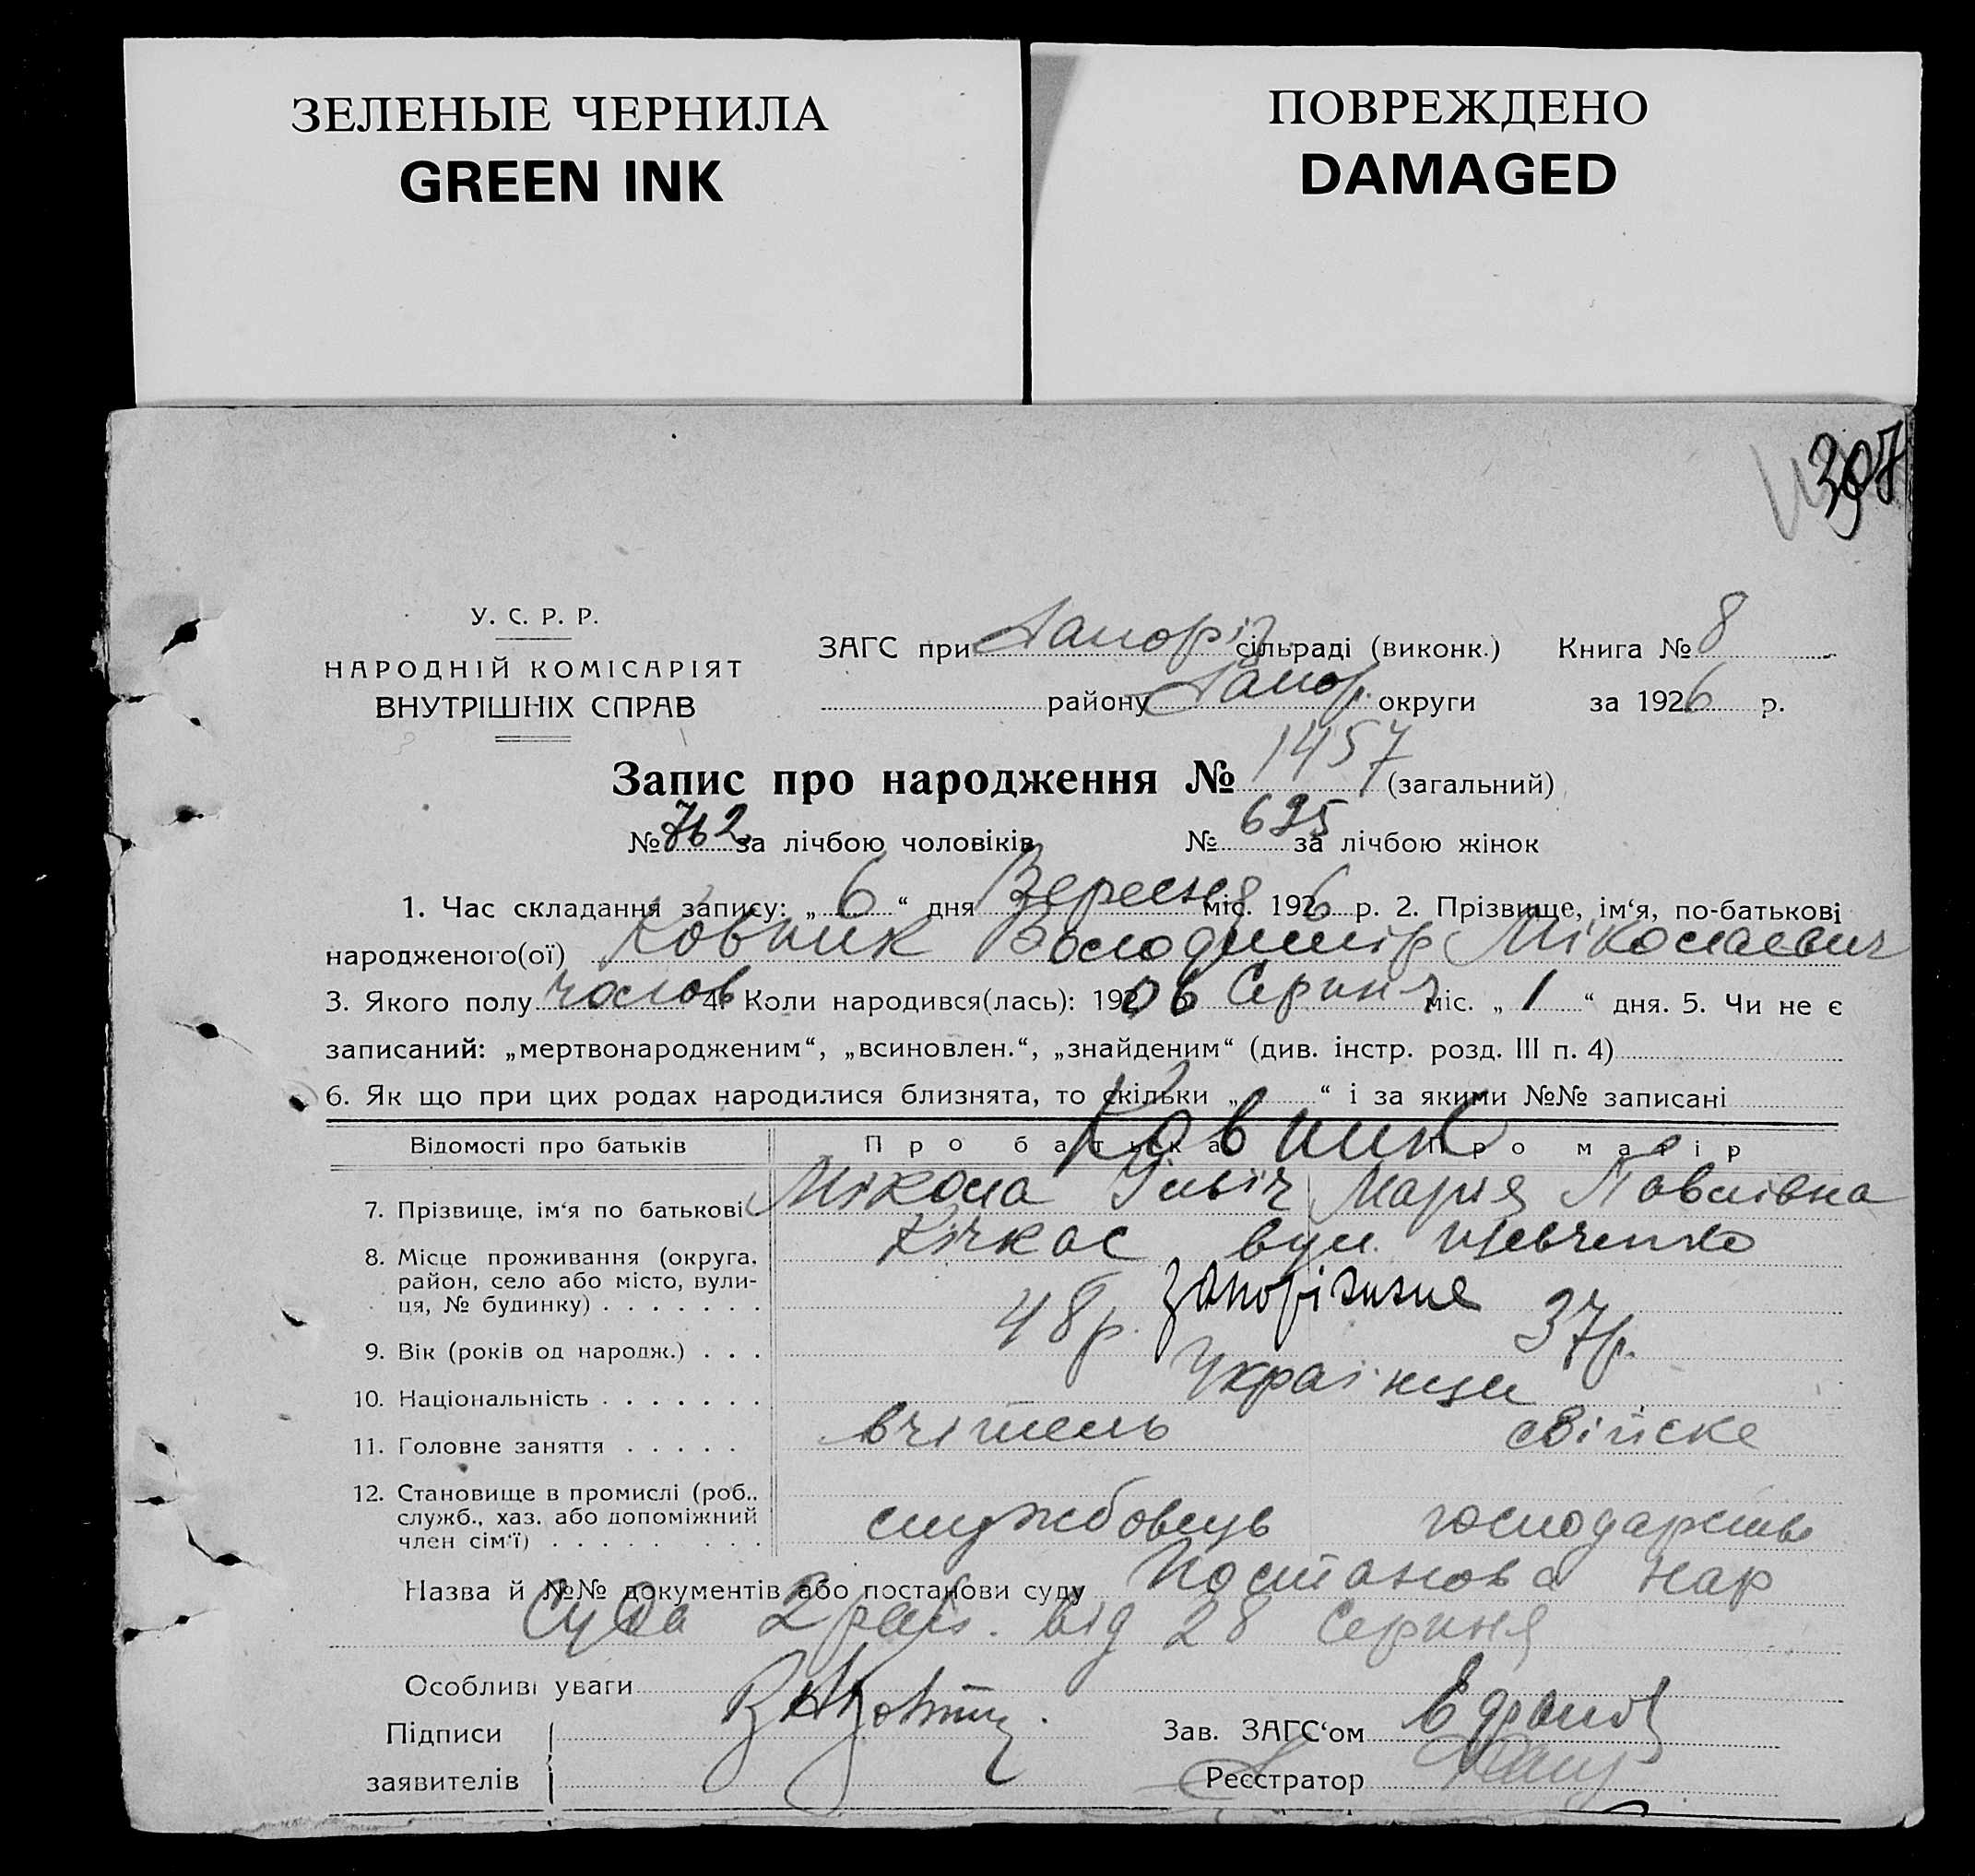 ЗЕЛЕНЫЕ ЧЕРНИЛА
GREEN INK
ПОВРЕЖДЕНО
DAMAGED
307
У. С. Р. Р.
НАРОДНІЙ КОМІСАРІЯТ
ВНУТРІШНІХ СПРАВ
ЗАГС при Запоріз. сільраді (виконк.) Книга № 8
району Запор. округи за 1926 р.
Запис про народження № 1457 (загальний)
№ 762 за лічбою чоловіків № 695 за лічбою жінок
1. Час складання запису: „ 6 “ дня Вересня міс. 1926 р. 2. Прізвище, ім‘я, по-батькові
народженого(ої) Ковник Володимір Міколаевич
3. Якого полу чолов 4. Коли народився(лась): 1906 Серпня міс. „ 1 “ дня. 5. Чи не є
записаний: „мертвонародженим“, „всиновлен.“, „знайденим“ (див. інстр. розд. III п. 4)
6. Як що при цих родах народилися близнята, то скільки „ “ і за якими №№ записані
Відомості про батьків Про батька Про матір
Ковник
7. Прізвище, ім‘я по батькові Мікола Ільіч Марія Павлівна
8. Місце проживання (округа, Кічкас вул. Шевченко
район, село або місто, вули-
ця, № будинку) . . . . . . .
9. Вік (років од народж.) . . . 48р. 37р.
10. Національність . . . . . . . Українци
11. Головне заняття . . . . . вчітель свійске
12. Становище в промислі (роб.,
служб., хаз. або допоміжний службовець господарство
член сім‘ї) . . . . . . . . .
Назва й №№ документів або постанови суду Постанова Нар
Суда 2 рай. від 28 Серпня
Особливі уваги
Підписи Зав. ЗАГС‘ом
заявителів Реєстратор